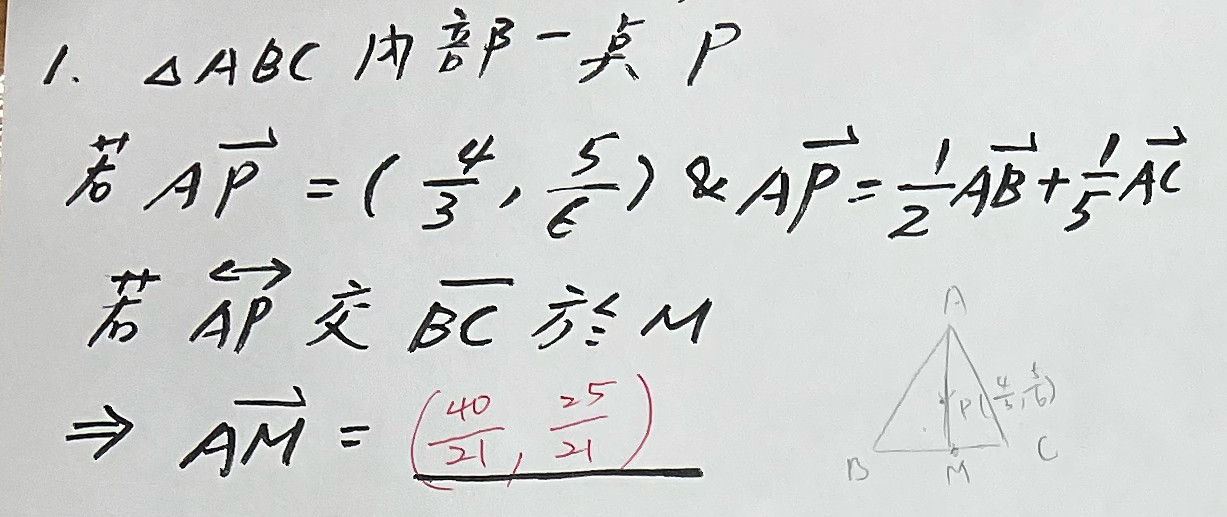 1. △ABC 內部一點 P
若 AP⃗ = (4/3, 5/6) & AP⃗ = 1/2 AB⃗ + 1/5 AC⃗
若 AP⃡ 交 B̅C̅ 於 M
⇒ AM⃗ = (40/21, 25/21)
A
P(4/3, 5/6)
B M C